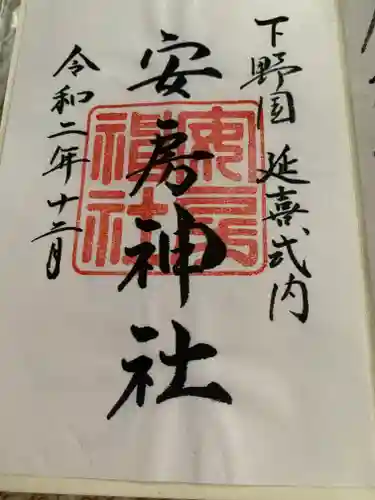 下野国 延喜式内
安房神社
安房
神社
令和二年十二月